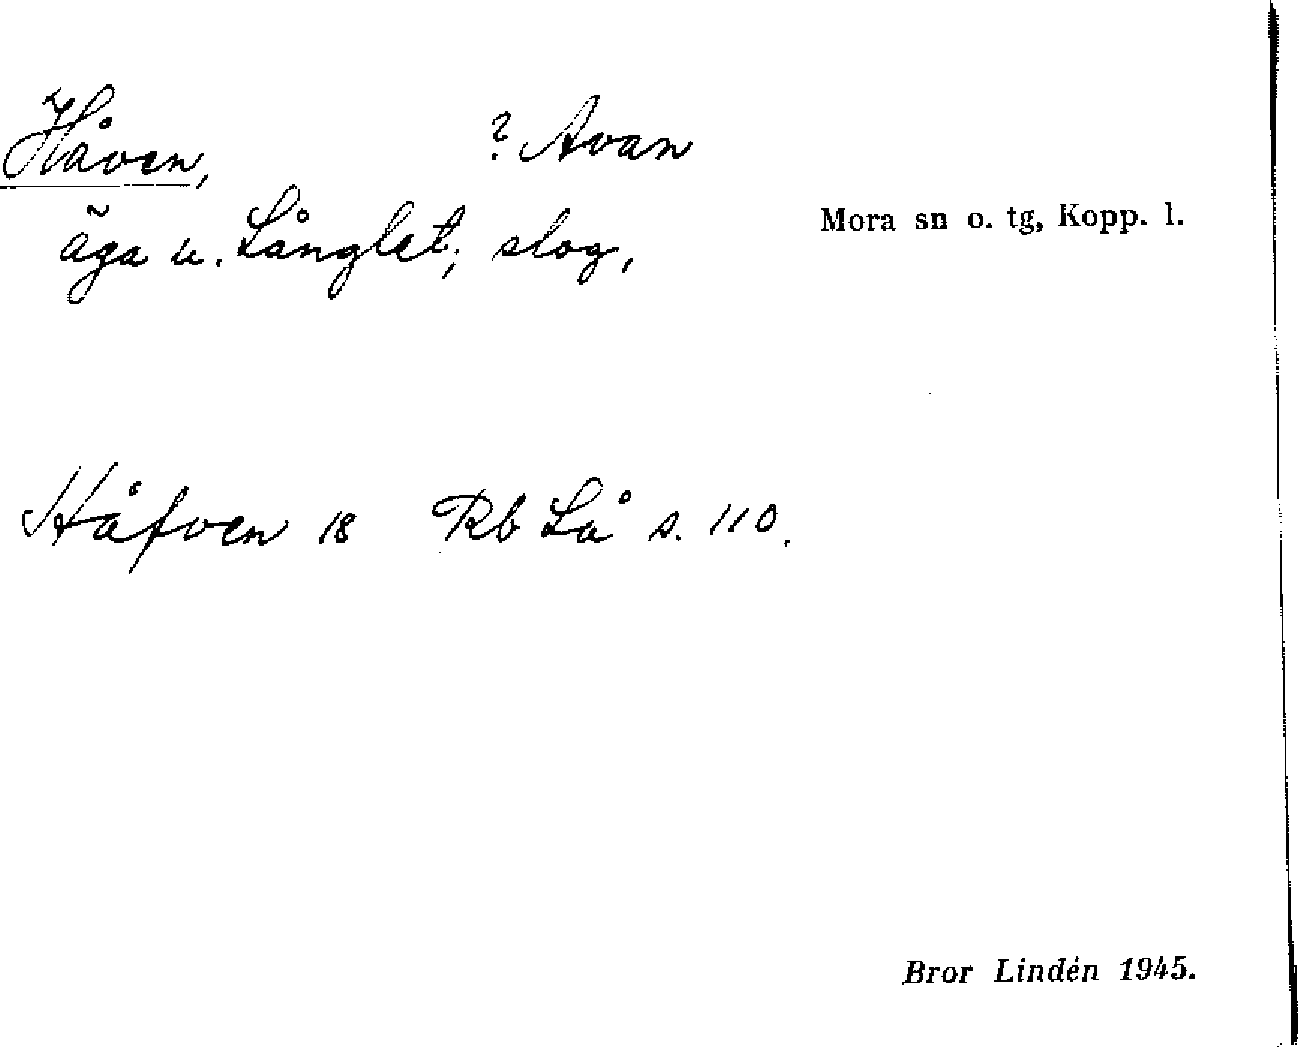 Håven, ? Avan
Mora sn o. tg, Kopp. l.
äga u. Långlet, slog,
Håfven 18 Rb Lå s. 110.
Bror Lindén 1945.